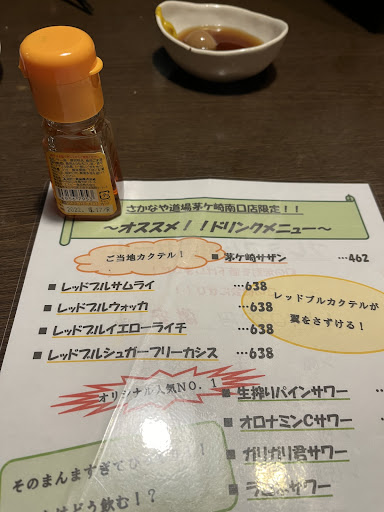 さかなや道場茅ケ崎南口店限定！！
～オススメ！！ドリンクメニュー～
ご当地カクテル！
■ 茅ケ崎サザン …462
■ レッドブルサムライ …638
■ レッドブルウォッカ …638
■ レッドブルイエローライチ …638
■ レッドブルシュガーフリーカシス …638
レッドブルカクテルが
翼をさずける！
オリジナル人気NO.1
■ 生搾りパインサワー
■ オロナミンCサワー
■ ガリガリ君サワー
サワー
そのまんますぎて
どう飲む！？